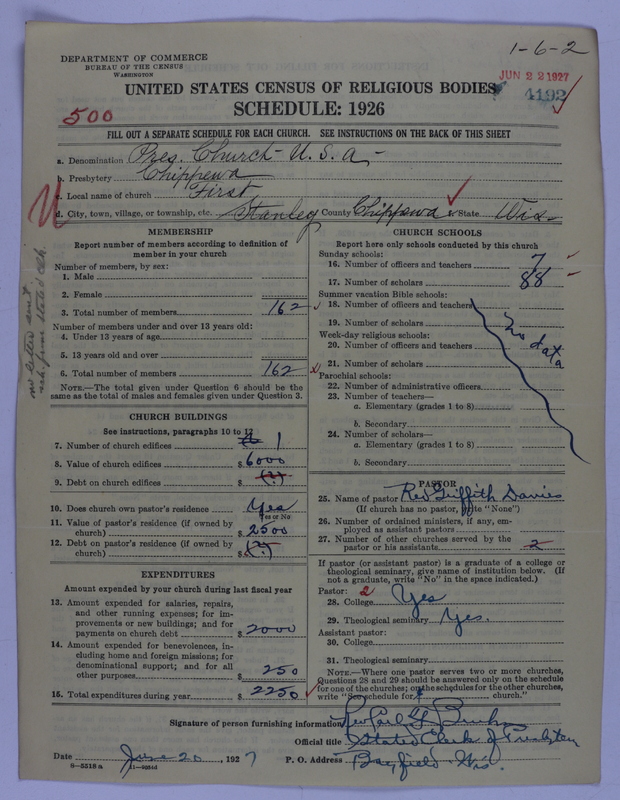 1-6-2
DEPARTMENT OF COMMERCE
BUREAU OF THE CENSUS
WASHINGTON
JUN 22 1927
4192
UNITED STATES CENSUS OF RELIGIOUS BODIES
500
SCHEDULE: 1926
FILL OUT A SEPARATE SCHEDULE FOR EACH CHURCH. SEE INSTRUCTIONS ON THE BACK OF THIS SHEET
a. Denomination Pres. Church - U.S.A. -
b. Presbytery Chippewa
c. Local name of church First
d. City, town, village, or township, etc. Stanley County Chippewa & State Wis-
MEMBERSHIP
Report number of members according to definition of
member in your church
Number of members, by sex:
1. Male
2. Female
3. Total number of members 162
Number of members under and over 13 years old:
4. Under 13 years of age
5. 13 years old and over
6. Total number of members 162
NOTE.—The total given under Question 6 should be the
same as the total of males and females given under Question 3.
no letter sent.
CHURCH BUILDINGS
See instructions, paragraphs 10 to 12
7. Number of church edifices 1
8. Value of church edifices $ 6000
9. Debt on church edifices $ (?)
10. Does church own pastor's residence Yes
Yes or No
11. Value of pastor's residence (if owned by
church) $ 2500
12. Debt on pastor's residence (if owned by
church) $ (?)
EXPENDITURES
Amount expended by your church during last fiscal year
13. Amount expended for salaries, repairs,
and other running expenses; for im-
provements or new buildings; and for
payments on church debt $ 2000
14. Amount expended for benevolences, in-
cluding home and foreign missions; for
denominational support; and for all
other purposes 250
15. Total expenditures during year $ 2250
CHURCH SCHOOLS
Report here only schools conducted by this church
Sunday schools:
16. Number of officers and teachers 7
17. Number of scholars 88
Summer vacation Bible schools:
18. Number of officers and teachers
19. Number of scholars
Week-day religious schools:
20. Number of officers and teachers
21. Number of scholars
no data
Parochial schools:
22. Number of administrative officers
23. Number of teachers—
a. Elementary (grades 1 to 8)
b. Secondary
24. Number of scholars—
a. Elementary (grades 1 to 8)
b. Secondary
PASTOR
25. Name of pastor Rev Griffith Davies
(If church has no pastor, write "None")
26. Number of ordained ministers, if any, em-
ployed as assistant pastors
27. Number of other churches served by the
pastor or his assistants 2
If pastor (or assistant pastor) is a graduate of a college or
theological seminary, give name of institution below. (If
not a graduate, write "No" in the space indicated.)
Pastor: 2
28. College Yes
29. Theological seminary Yes.
Assistant pastor:
30. College
31. Theological seminary
NOTE.—Where one pastor serves two or more churches,
Questions 28 and 29 should be answered only on the schedule
for one of the churches; on the schedules for the other churches,
write "See schedule for church."
Signature of person furnishing information Rev
Official title Stated Clerk of Presbytery
Date June 20, 1927 P. O. Address Bayfield Wis.
8—5518 a 11—9924d